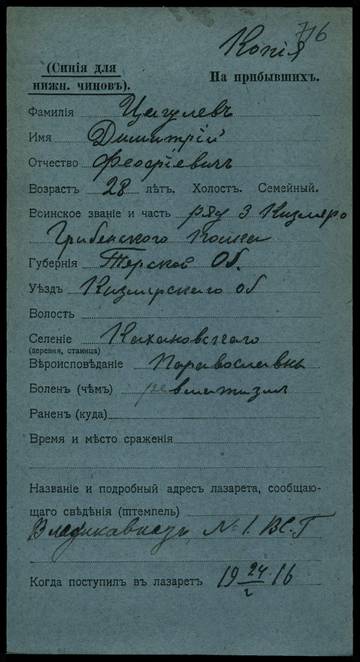 716
Копія
(Синія для
нижн. чиновъ).
На прибывшихъ.
Фамилія Цагулевъ
Имя Димитрій
Отчество
Возрастъ 28 лѣтъ. Холост. Семейный.
Воинское званіе и часть ряд 3 Кизляро
Гребенского Полка
Губернія Терской Об.
Уѣздъ Кизлярскаго об
Волость
Селеніе Кахановскаго
(деревня, станица)
Вѣроисповѣданіе Православнъ
Боленъ (чѣмъ) ревматизм
Раненъ (куда)
Время и мѣсто сраженія
Названіе и подробный адресъ лазарета, сообщаю-
щаго свѣдѣнія (штемпель)
Владикавказъ № 1. В.С.Г
Когда поступил въ лазаретъ 19 24/2 16